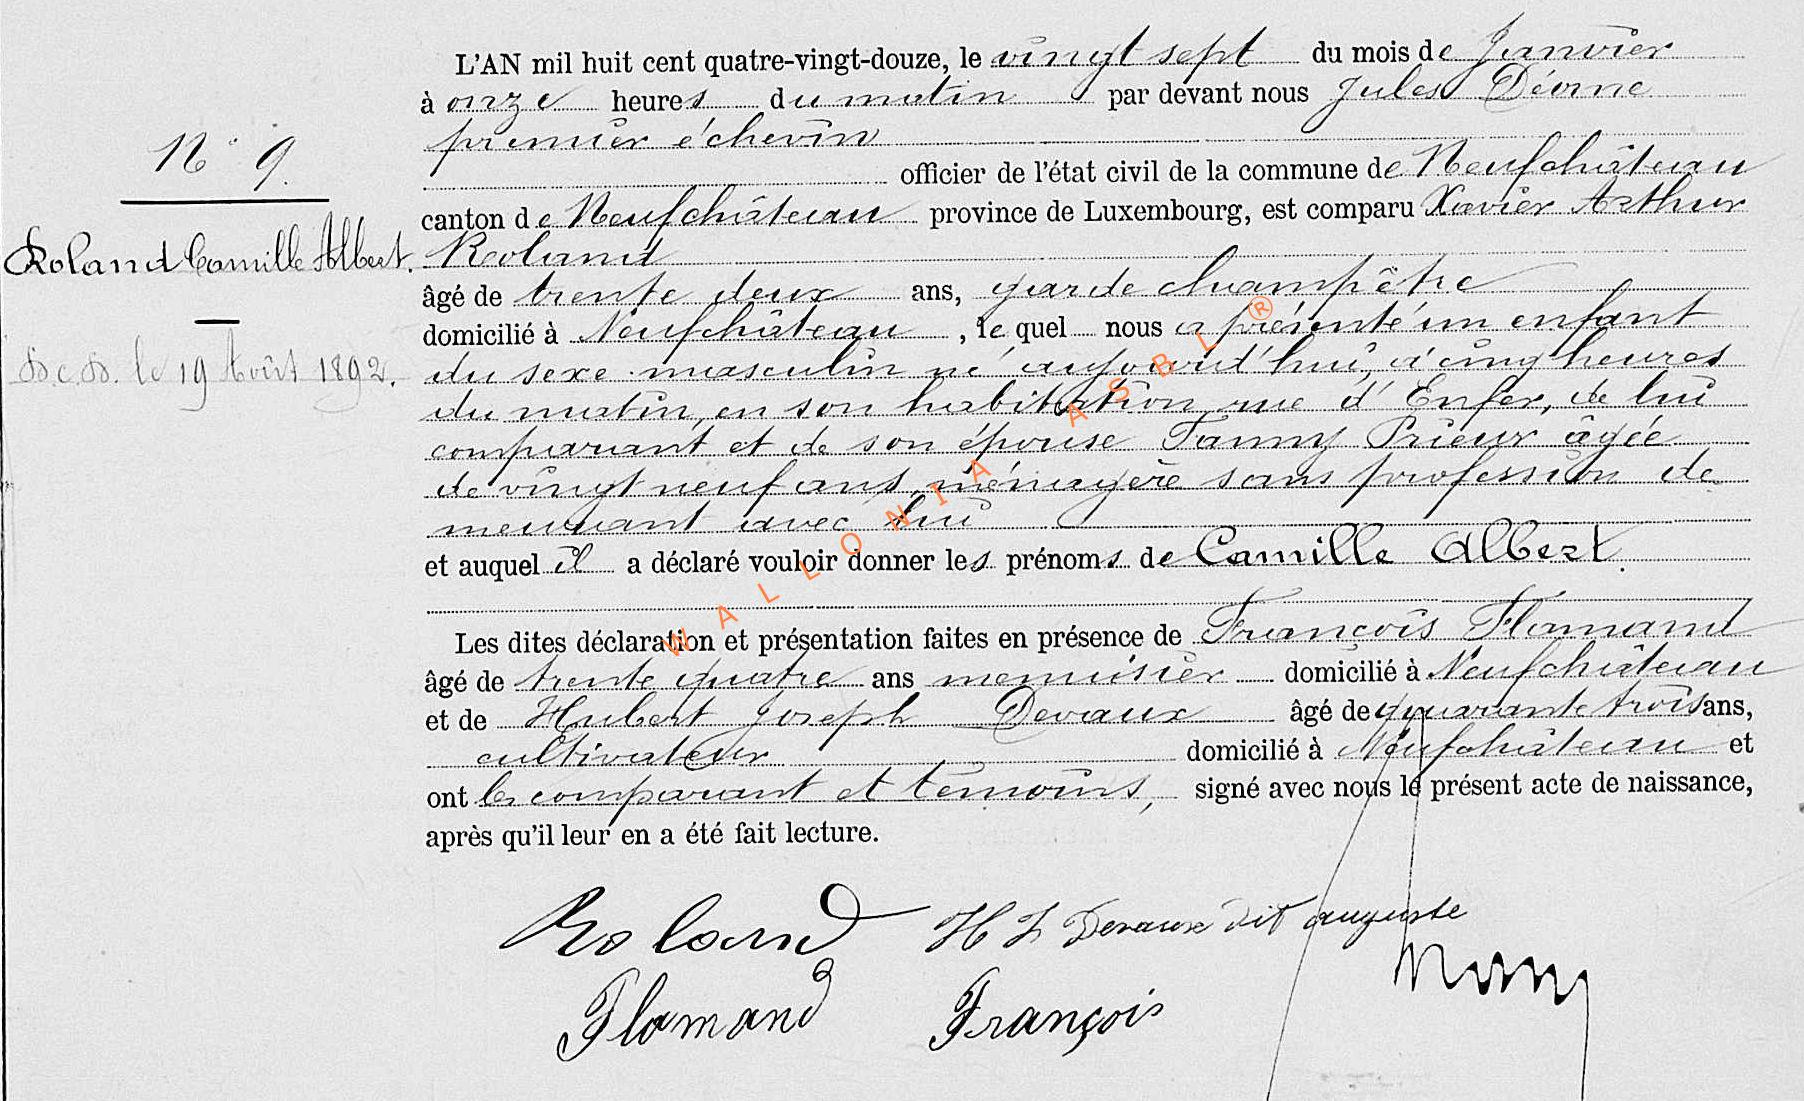 L'AN mil huit cent quatre-vingt-douze, le vingt sept du mois de Janvier
à onze heures du matin par devant nous Jules
premier échevin
officier de l'état civil de la commune de Neufchâteau
canton de Neufchâteau province de Luxembourg, est comparu Xavier Arthur
Roland
âgé de trente deux ans, garde champêtre
domicilié à Neufchâteau, lequel nous a présenté un enfant
du sexe masculin né aujourd'hui, à cinq heures
du matin, en son habitation rue d'Enfer, de lui
comparant et de son épouse Fanny Prieur âgée
de vingt neuf ans, ménagère sans profession de
meurant avec lui
et auquel il a déclaré vouloir donner les prénoms de Camille Albert.
Les dites déclaration et présentation faites en présence de François Flamand
âgé de trente quatre ans menuisier domicilié à Neufchâteau
et de Hubert Joseph Devaux âgé de quarante trois ans,
cultivateur domicilié à Neufchâteau et
ont les comparant et témoins, signé avec nous le présent acte de naissance,
après qu'il leur en a été fait lecture.
Roland H J Devaux dit auguste
Flamand François
N° 9.
Roland Camille Albert.
Déc. le 19 Août 1892.
WALLONIA ASBL ®